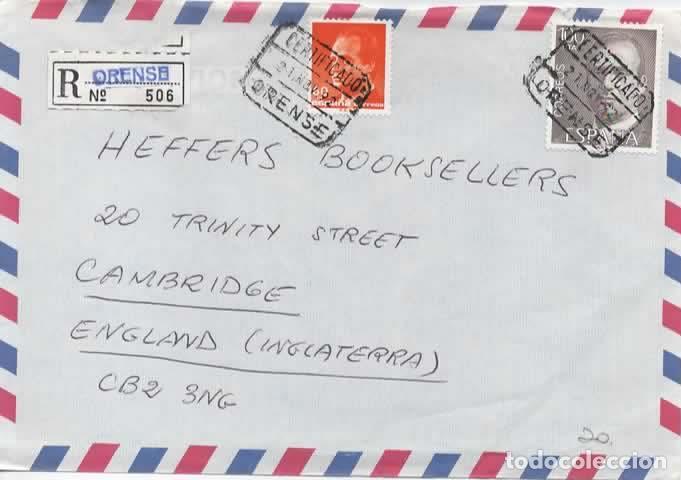 R ORENSE
Nº 506
CERTIFICADO
ORENSE
60
España correos
CERTIFICADO
ORENSE
100
CORREOS
ESPAÑA
HEFFERS BOOKSELLERS
20 TRINITY STREET
CAMBRIDGE
ENGLAND (INGLATERRA)
CB2 3NG
20.
todocoleccion